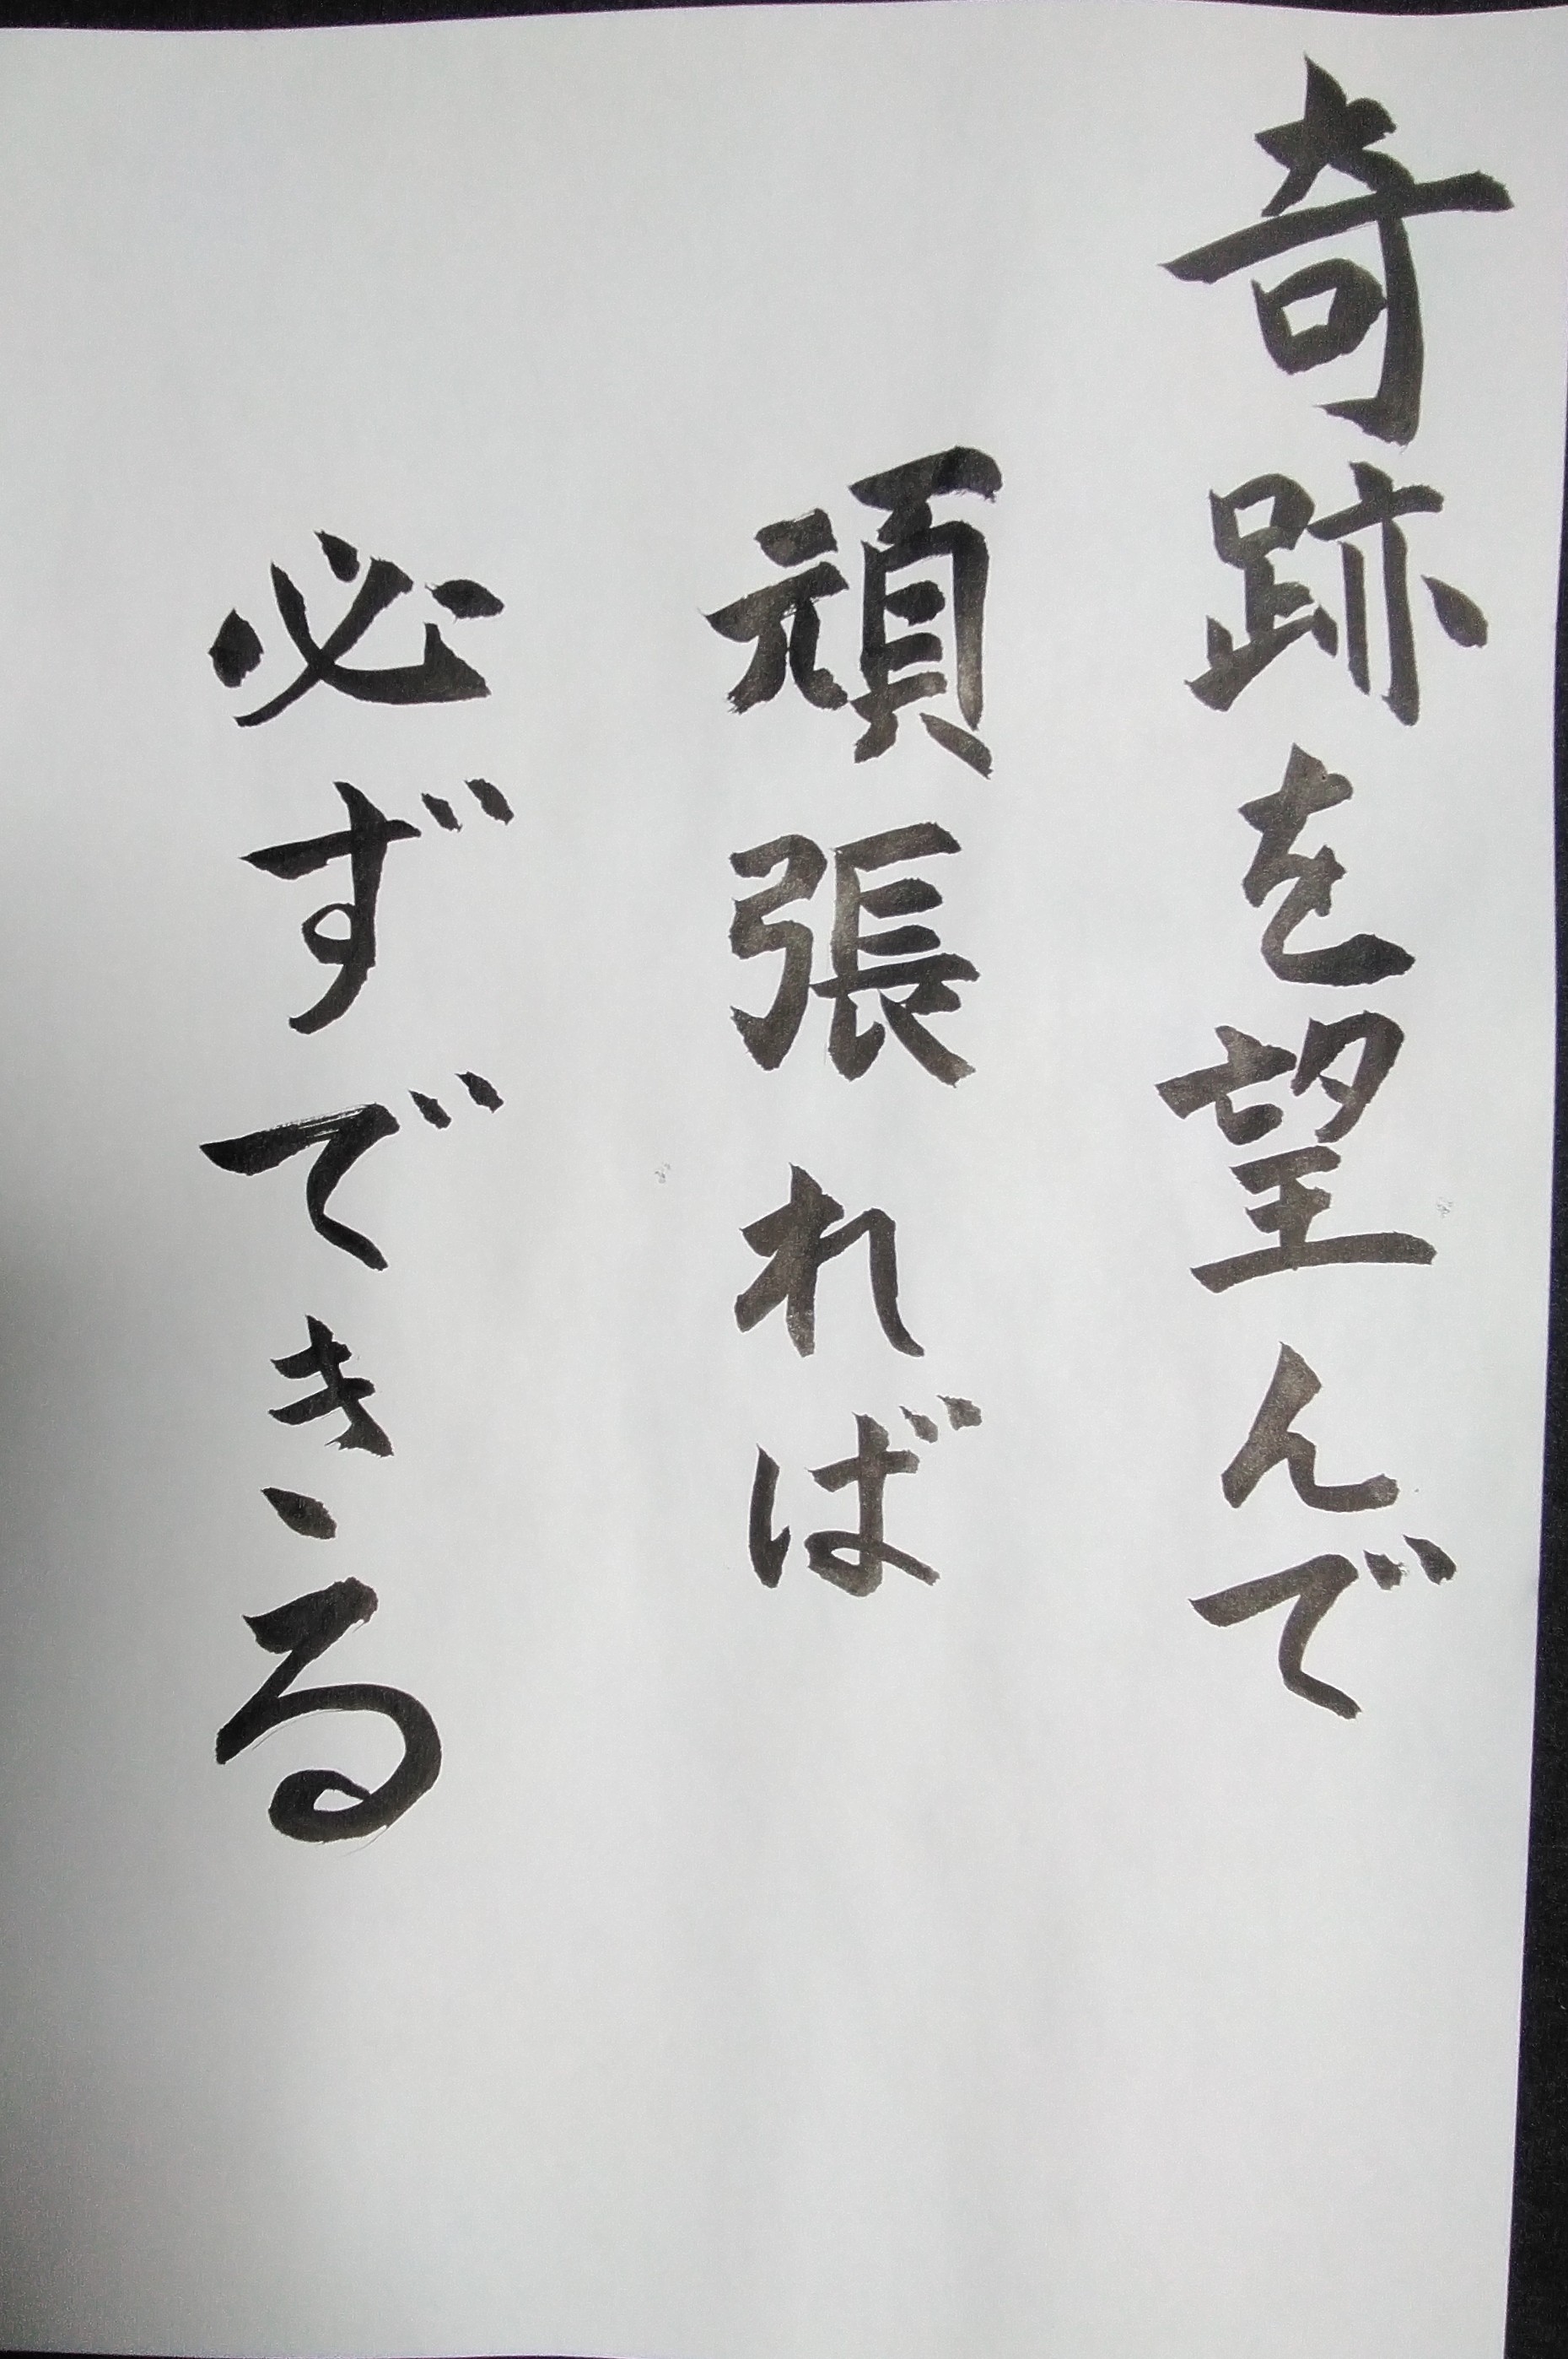 奇跡を望んで
頑張れば
必ずできる